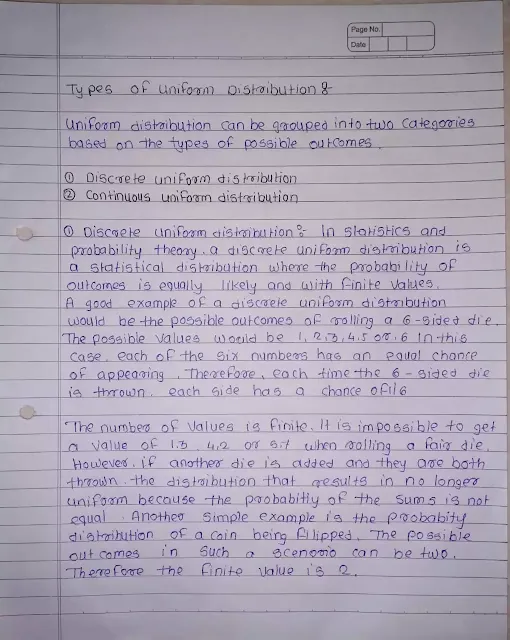 Page No.
Date
Types of Uniform Distribution :-
Uniform distribution can be grouped into two Categories
based on the types of possible outcomes.
① Discrete uniform distribution
② Continuous uniform distribution
① Discrete uniform distribution :- In statistics and
probability theory. a discrete uniform distribution is
a statistical distribution where the probability of
outcomes is equally likely and with finite values.
A good example of a discrete uniform distribution
would be the possible outcomes of rolling a 6-sided die.
The possible values would be 1, 2, 3, 4, 5 or, 6 In this
case, each of the six numbers has an equal chance
of appearing. Therefore, each time the 6 - sided die
is thrown, each side has a chance of 1/6
The number of values is finite. It is impossible to get
a value of 1.3 4,2 or 5.7 when rolling a fair die.
However, if another die is added and they are both
thrown, the distribution that results in no longer
uniform because the probabitly of the sums is not
equal. Another simple example is the probabity
distribution of a coin being flipped. The possible
outcomes in such a scenorio can be two.
Therefore the finite value is 2.